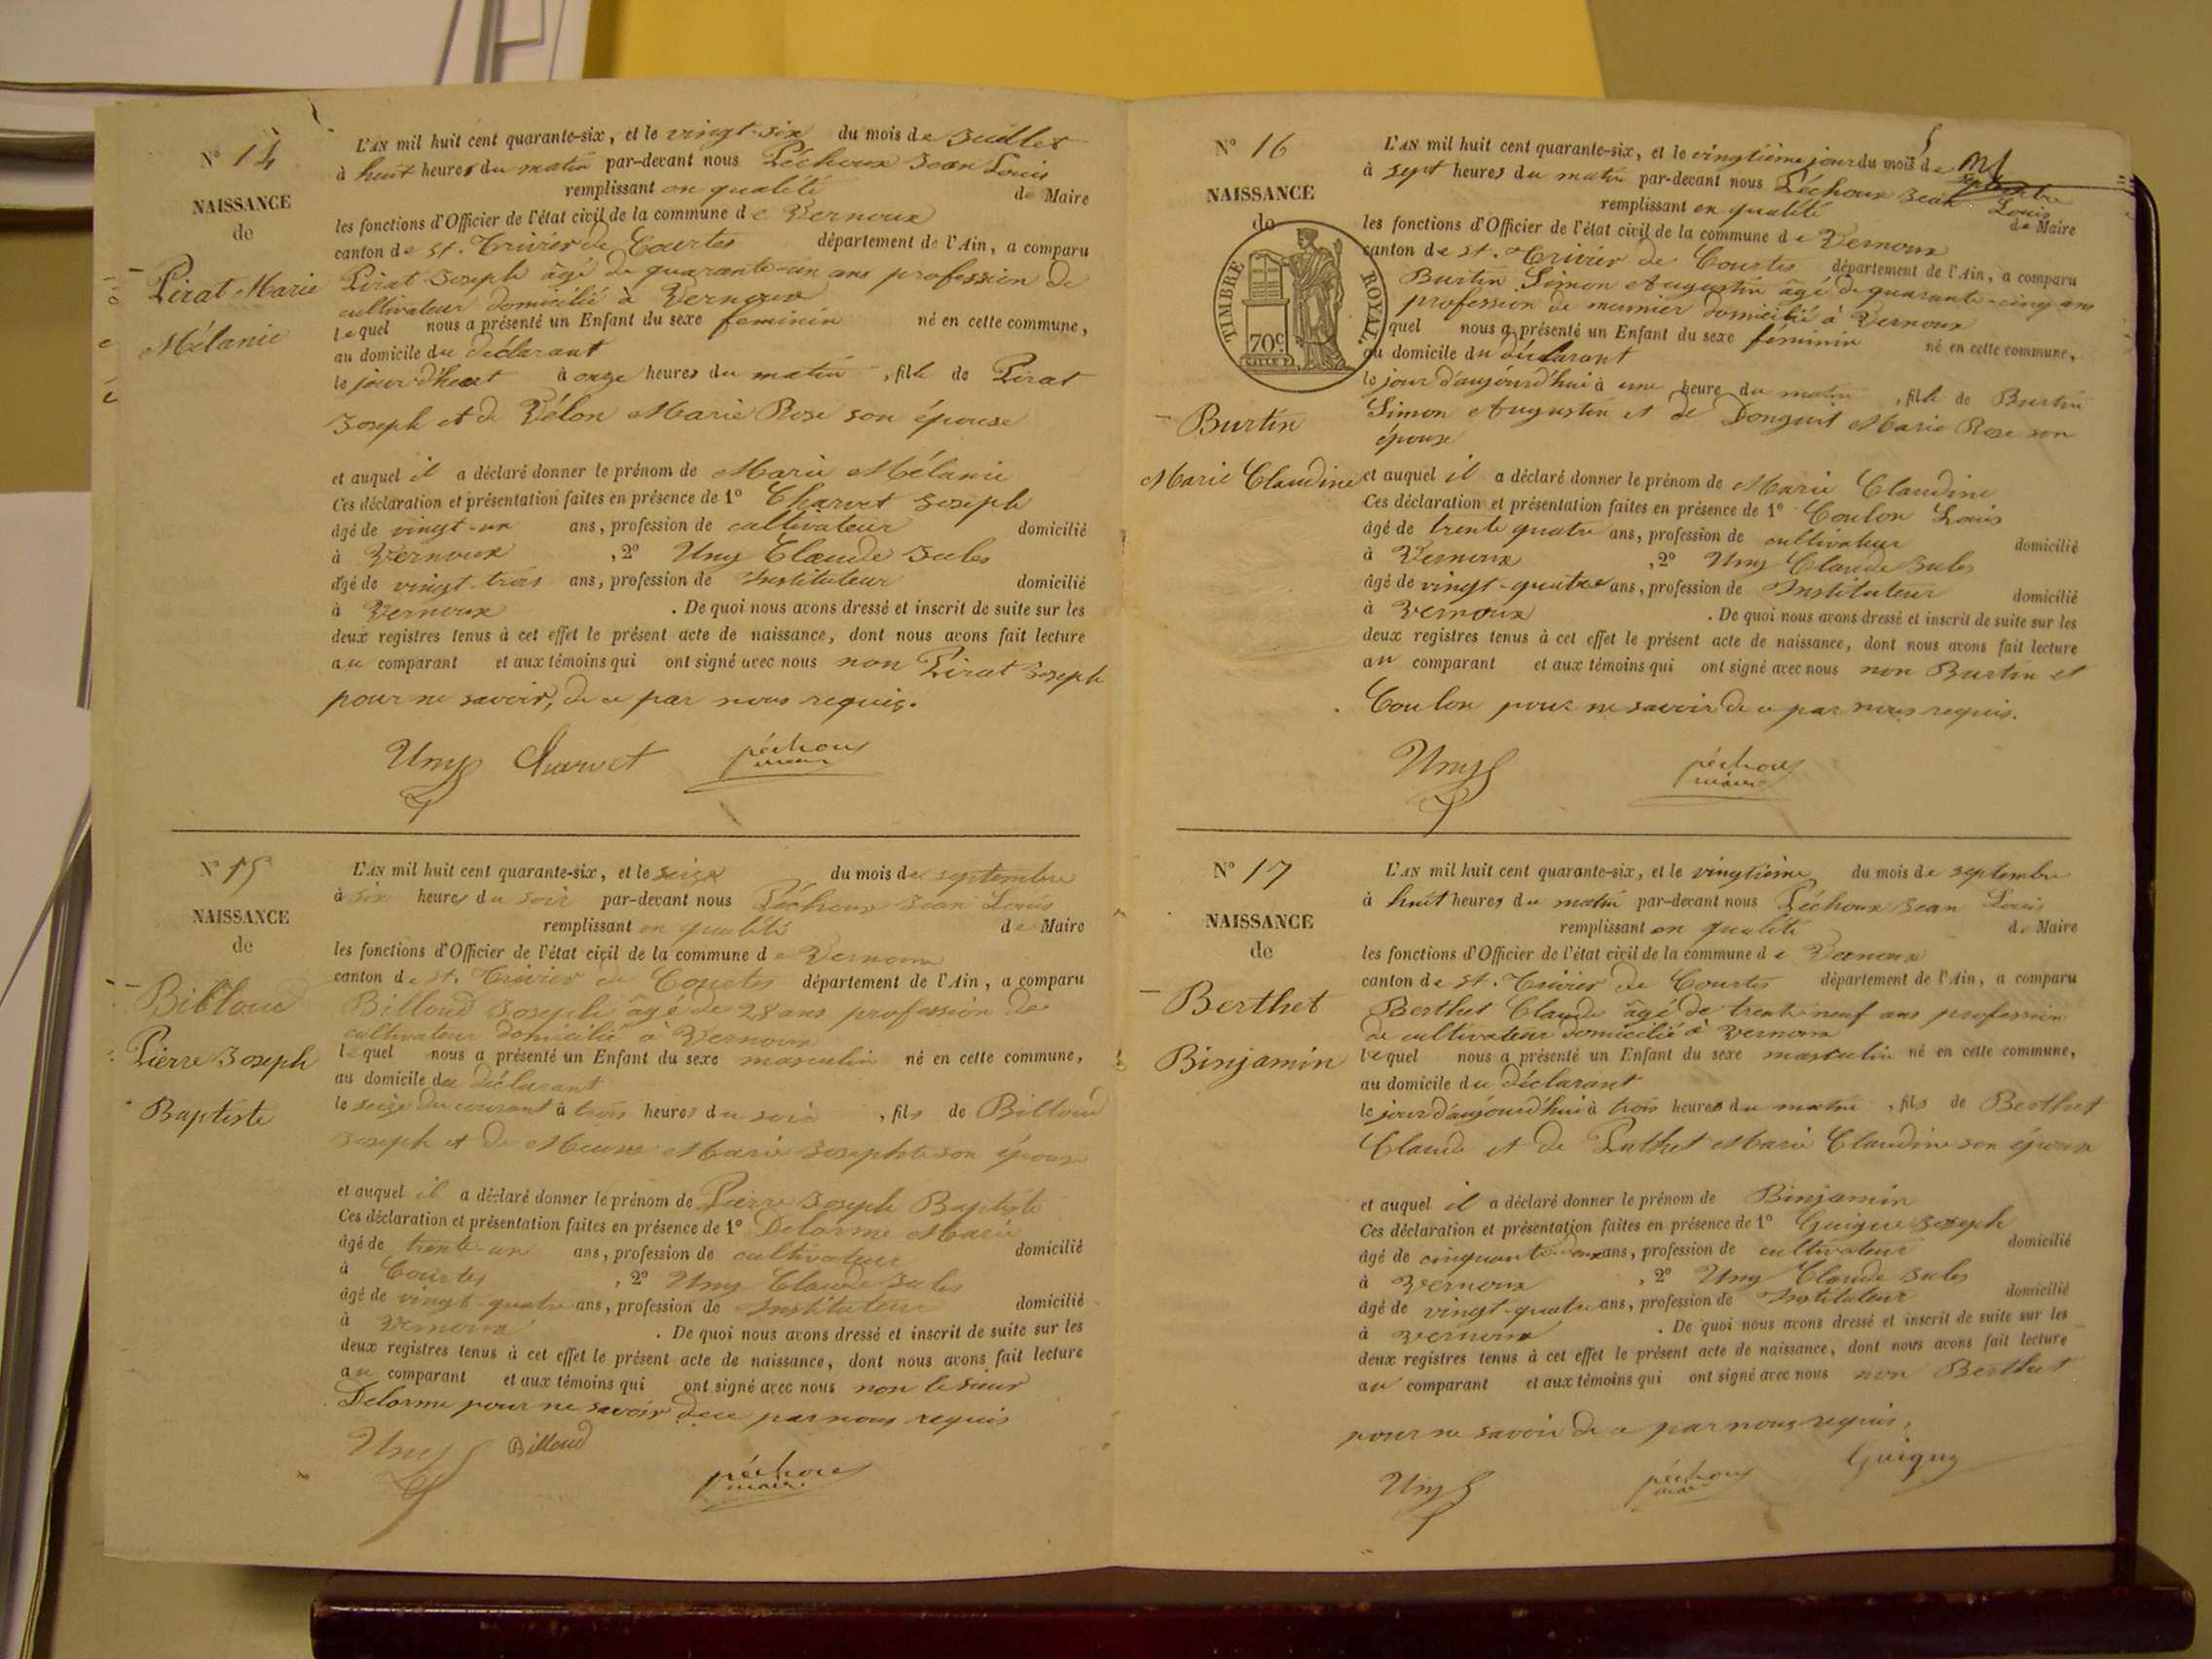 N° 14
NAISSANCE
de
Pirat Marie
Mélanie
L'AN mil huit cent quarante-six, et le vingt-six du mois de Juillet
à huit heures du matin par-devant nous Péchoux Jean Louis
remplissant en qualité de Maire
les fonctions d'Officier de l'état civil de la commune de Vernoux
canton de St. Trivier de Courtes département de l'Ain, a comparu
Pirat Joseph âgé de quarante-un ans profession de
cultivateur domicilié à Vernoux
lequel nous a présenté un Enfant du sexe feminin né en cette commune,
au domicile du déclarant
le jour d'hier à onze heures du matin, fille de Pirat
Joseph et de Vélon Marie Rose son épouse
et auquel il a déclaré donner le prénom de Marie Mélanie
Ces déclaration et présentation faites en présence de 1° Charvet Joseph
âgé de vingt-un ans, profession de cultivateur domicilié
à Vernoux, 2° Uny Claude Jules
âgé de vingt-trois ans, profession de Instituteur domicilié
à Vernoux. De quoi nous avons dressé et inscrit de suite sur les
deux registres tenus à cet effet le présent acte de naissance, dont nous avons fait lecture
au comparant et aux témoins qui ont signé avec nous non Pirat Joseph
pour ne savoir, de ce par nous requis.
Uny Charvet péchoux
maire
N° 15
NAISSANCE
de
Billoud
Pierre Joseph
Baptiste
L'AN mil huit cent quarante-six, et le seize du mois de septembre
à six heures du soir par-devant nous Péchoux Jean Louis
remplissant en qualité de Maire
les fonctions d'Officier de l'état civil de la commune de Vernoux
canton de St. Trivier de Courtes département de l'Ain, a comparu
Billoud Joseph âgé de 28 ans profession de
cultivateur domicilié à Vernoux
lequel nous a présenté un Enfant du sexe masculin né en cette commune,
au domicile du déclarant
le seize du courant à trois heures du soir, fils de Billoud
Joseph et de Marie Josephte son épouse
et auquel il a déclaré donner le prénom de Pierre Joseph Baptiste
Ces déclaration et présentation faites en présence de 1° Delorme Marie
âgé de trente-un ans, profession de cultivateur domicilié
à Courtes, 2° Uny Claude Jules
âgé de vingt-quatre ans, profession de Instituteur domicilié
à Vernoux. De quoi nous avons dressé et inscrit de suite sur les
deux registres tenus à cet effet le présent acte de naissance, dont nous avons fait lecture
au comparant et aux témoins qui ont signé avec nous non le sieur
Delorme pour ne savoir de ce par nous requis
Uny Billoud
péchoux
maire
N° 16
NAISSANCE
de
TIMBRE ROYAL.
70c
Burtin
Marie Claudine
L'AN mil huit cent quarante-six, et le vingtième jour du mois de septembre
à sept heures du matin par-devant nous Péchoux Jean Louis
remplissant en qualité de Maire
les fonctions d'Officier de l'état civil de la commune de Vernoux
canton de St. Trivier de Courtes département de l'Ain, a comparu
Burtin Simon Augustin âgé de quarante-cinq ans
profession de meunier domicilié à Vernoux
quel nous a présenté un Enfant du sexe féminin né en cette commune,
au domicile du déclarant
le jour d'aujourd'hui à une heure du matin, fille de Burtin
Simon Augustin et de Donguit Marie Rose son
épouse
et auquel il a déclaré donner le prénom de Marie Claudine
Ces déclaration et présentation faites en présence de 1° Coulon Louis
âgé de trente quatre ans, profession de cultivateur domicilié
à Vernoux, 2° Uny Claude Jules
âgé de vingt-quatre ans, profession de Instituteur domicilié
à Vernoux. De quoi nous avons dressé et inscrit de suite sur les
deux registres tenus à cet effet le présent acte de naissance, dont nous avons fait lecture
au comparant et aux témoins qui ont signé avec nous non Burtin et
Coulon pour ne savoir de ce par nous requis.
Uny péchoux
maire
N° 17
NAISSANCE
de
Berthet
Binjamin
L'AN mil huit cent quarante-six, et le vingtième du mois de septembre
à huit heures du matin par-devant nous Péchoux Jean Louis
remplissant en qualité de Maire
les fonctions d'Officier de l'état civil de la commune de Vernoux
canton de St. Trivier de Courtes département de l'Ain, a comparu
Berthet Claude âgé de trente neuf ans profession
de cultivateur domicilié à Vernoux
lequel nous a présenté un Enfant du sexe masculin né en cette commune,
au domicile du déclarant
le jour d'aujourd'hui à trois heures du matin, fils de Berthet
Claude et de Puthet Marie Claudine son épouse
et auquel il a déclaré donner le prénom de Binjamin
Ces déclaration et présentation faites en présence de 1° Guigue Joseph
âgé de cinquante-deux ans, profession de cultivateur domicilié
à Vernoux, 2° Uny Claude Jules
âgé de vingt-quatre ans, profession de Instituteur domicilié
à Vernoux. De quoi nous avons dressé et inscrit de suite sur les
deux registres tenus à cet effet le présent acte de naissance, dont nous avons fait lecture
au comparant et aux témoins qui ont signé avec nous non Berthet
pour ne savoir de ce par nous requis,
Uny péchoux Guigue
maire